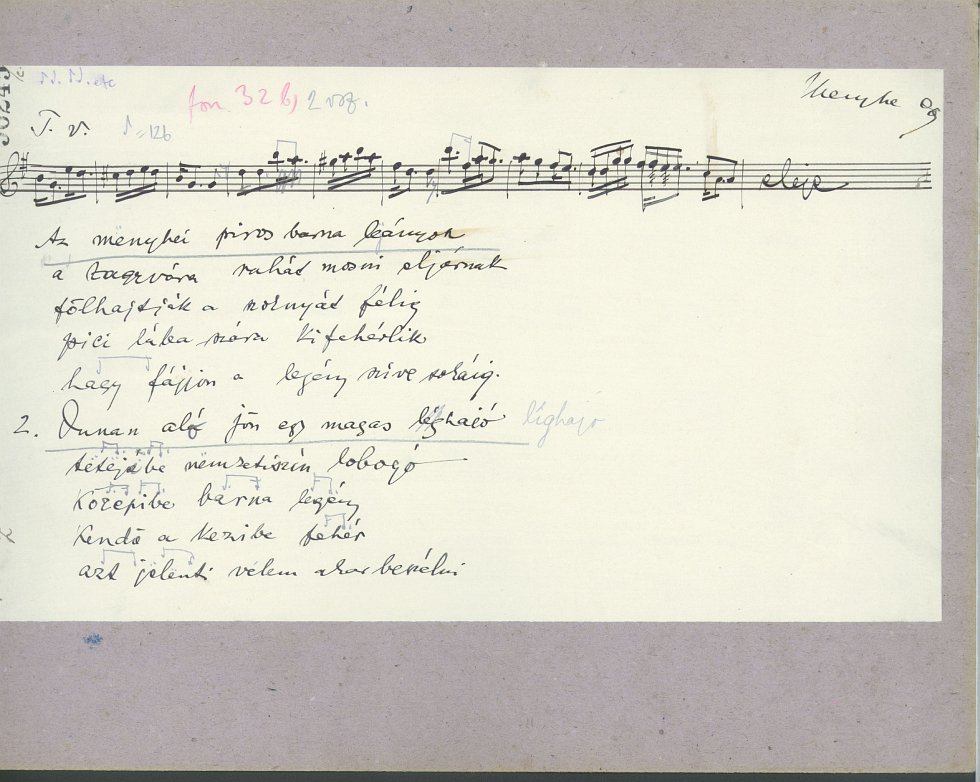 fon. 32 b) 2 vsz.
Menyhe 09
T. v. ♪=126
eleje
Az mënyhei piros barna leányok
a Zagrvára ruhát mosni eljárnak
fölhajtják a szoknyát félig
pici lába szára kifehérlik
hagy fájjon a legény szíve sokáig.
2. Dunan aló jön egy magas léghajó léghajó
tetejébe nemzetiszin lobogó
Közepibe barna legény
Kendő a kezibe fehér
azt jelenti velem akar beszélni